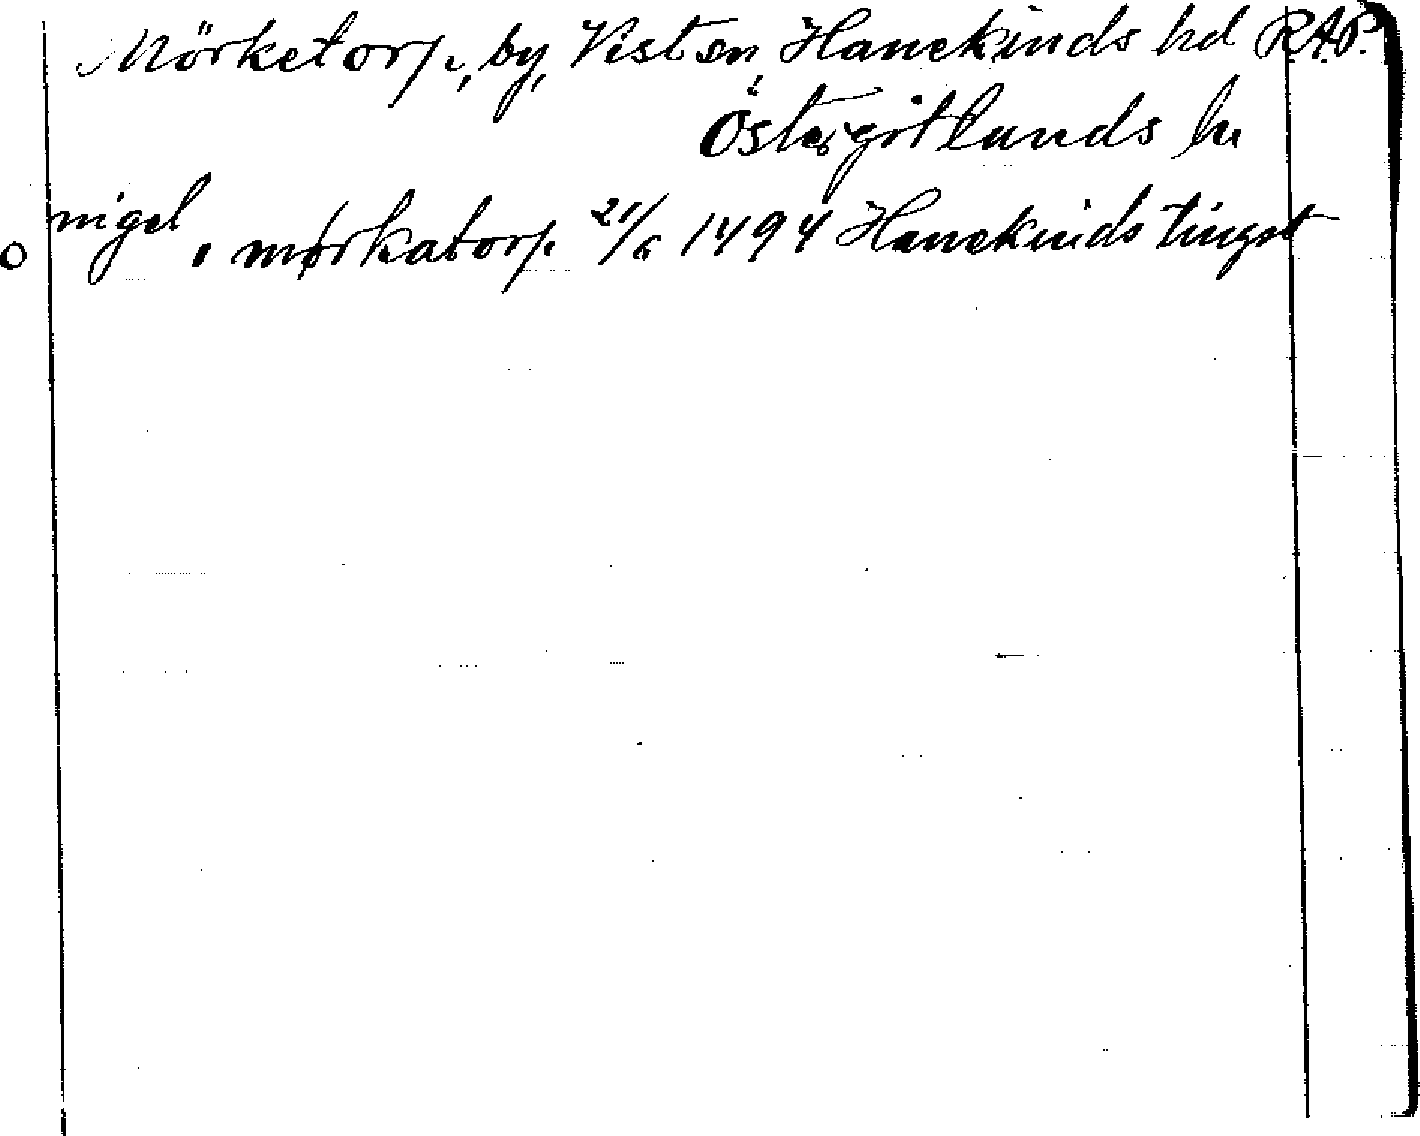 Mörketorp, by, Vist sn, Hanekinds hd R.A.P.
Östergötlands ln
nigel
o, mørkatorp. 21/6 1494 Hanekinds tingst